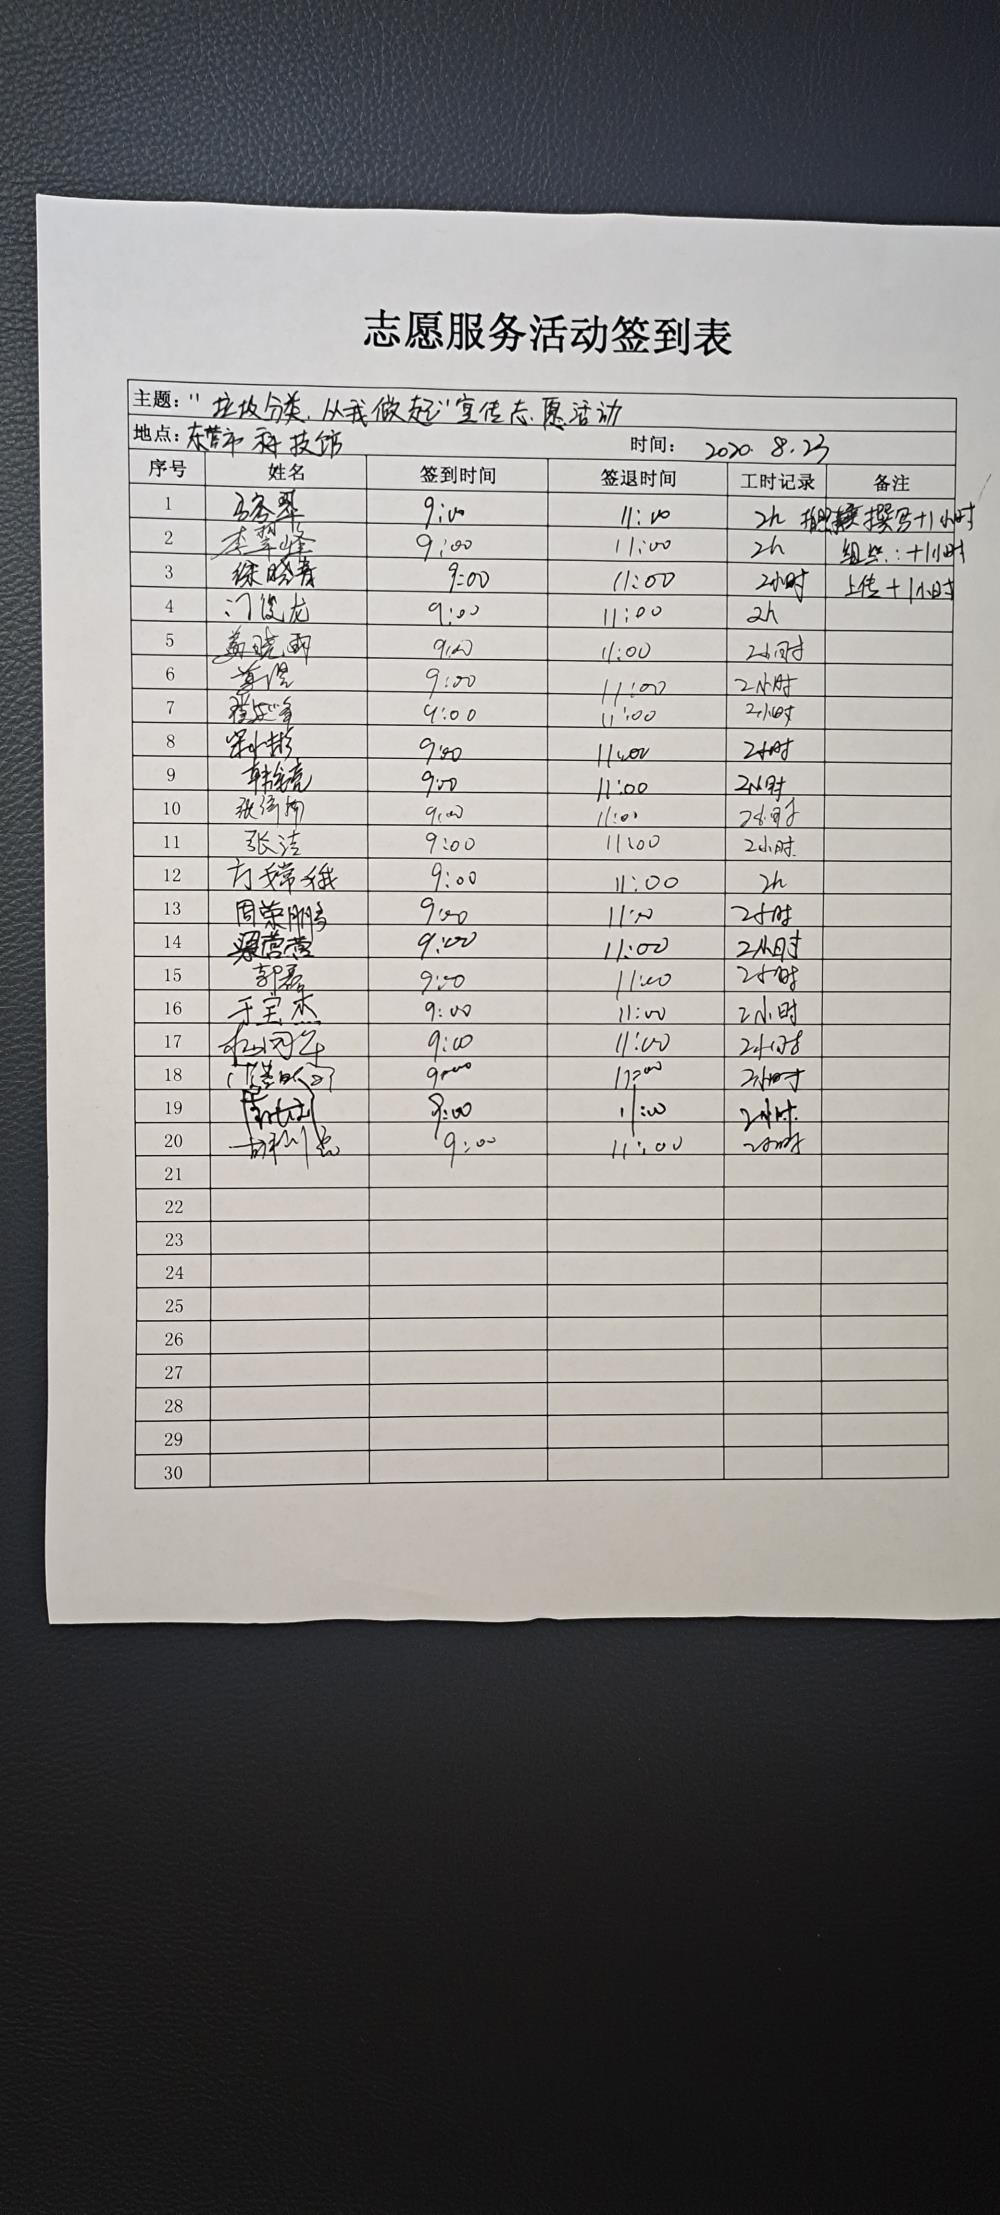 志愿服务活动签到表
主题："垃圾分类.从我做起"宣传志愿活动
地点：东营市科技馆 时间：2020.8.23
序号 姓名 签到时间 签退时间 工时记录 备注
1 9:00 11:00 2h 撰写+1小时
2 李翠峰 9:00 11:00 2h 组织：+1小时
3 徐晓青 9:00 11:00 2小时 上传+1小时
4 门俊龙 9:00 11:00 2h
5 晓雨 9:00 11:00 2小时
6 9:00 11:00 2小时
7 9:00 11:00 2小时
8 梁小彬 9:00 11:00 2小时
9 韩 亮 9:00 11:00 2小时
10 张 9:00 11:00 2小时
11 张洁 9:00 11:00 2小时
12 方嫦娥 9:00 11:00 2h
13 周荣鹏 9:00 11:00 2小时
14 梁营营 9:00 11:00 2小时
15 郭磊 9:00 11:00 2小时
16 于宝杰 9:00 11:00 2小时
17 9:00 11:00 2小时
18 9:00 11:00 2小时
19 9:00 11:00 2小时
20 胡利 9:00 11:00 2小时
21
22
23
24
25
26
27
28
29
30